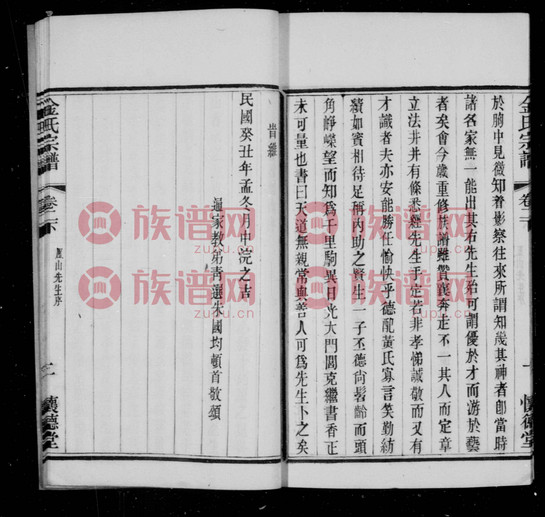 金氏宗譜
卷二下
一
懷德堂
於胸中見微知著影察往來所謂知幾其神者卽當時
諸名家無一能出其右先生殆可謂優於才而游於藝
者矣會今歲重修族譜雖贊襄奔走不一其人而定章
立法井井有條悉經先生手定若非孝悌誠敬而又有
才識者夫亦安能勝任愉快乎德配黃氏寡言笑勤紡
績如賓相待足稱內助之賢生一子丕德尙髫齡而頭
角崢嶸望而知爲千里駒異日光大門閭克繼書香正
未可量也書曰天道無親常與善人可爲先生卜之矣
昔
民國癸丑年孟冬月中浣之吉
通家教弟青選朱國均頓首敬頌
金氏宗譜
卷二下
星山先生序
二
懷德堂
族谱网
zupu.cn
族谱网
zupu.cn
族谱网
zupu.cn
族谱网
zupu.cn